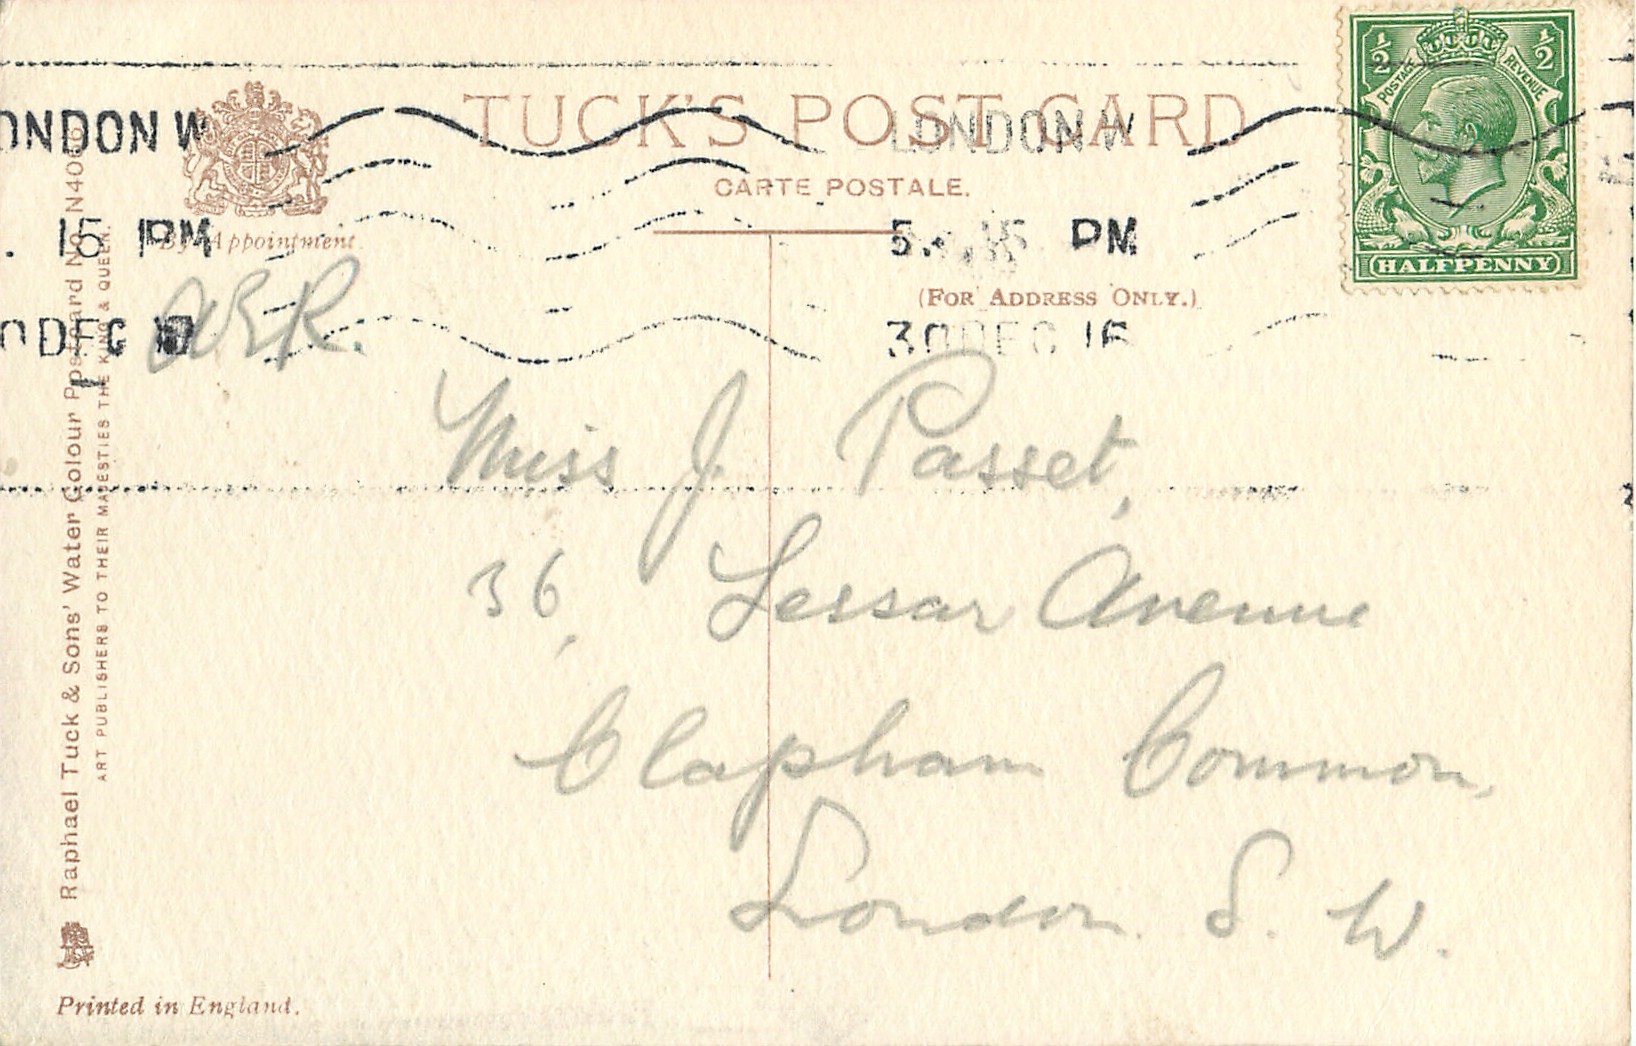 TUCK'S POST CARD
CARTE POSTALE.
(FOR ADDRESS ONLY.)
By Appointment.
LONDON W
5. 15 PM
30 DEC 16
ONDON W
. 15 PM
0 DEC
½ ½
POSTAGE REVENUE
HALFPENNY
Miss J. Passet,
36, Lessar Avenue
Clapham Common,
London. S. W.
Raphael Tuck & Sons' Water Colour Postcard No.
ART PUBLISHERS TO THEIR MAJESTIES THE KING & QUEEN.
Printed in England.